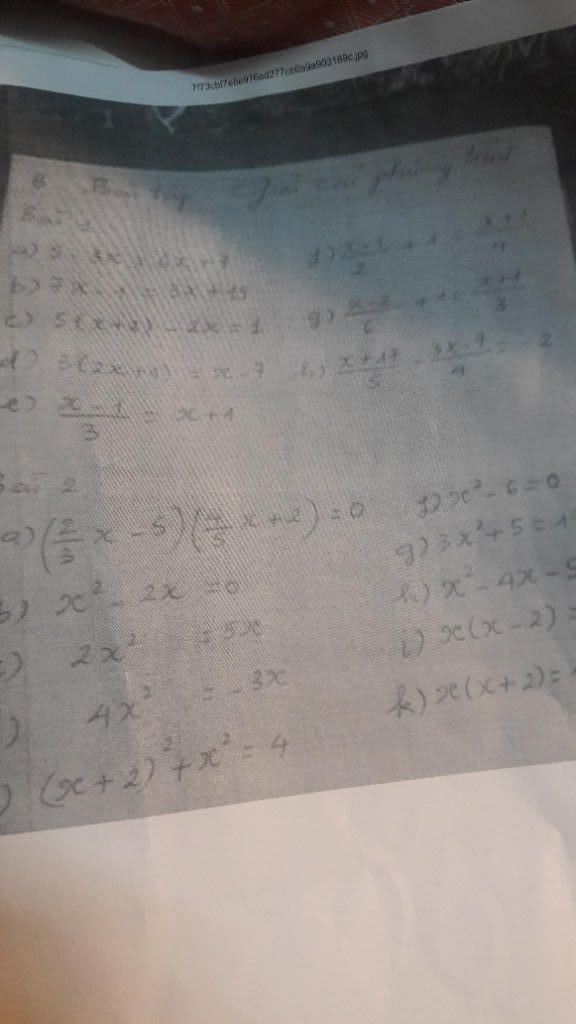 7f73cbf7e6e916ed277cb0a9a903189c.jpg
B Bài tập Giải các phương trình
Bài 1
a) 5 - 3x = 6x + 7
b) 7x - 1 = 3x + 15
c) 5(x+2) - 2x = 1
d) 3(2x+1) = x - 7
e) \frac{x-1}{3} = x + 1
f) \frac{x-1}{2} + 1 = \frac{x+1}{4}
g) \frac{x-2}{6} + 1 = \frac{x+1}{3}
h) \frac{x+17}{5} - \frac{3x-7}{4} = -2
Bài 2
a) (\frac{2}{3}x - 5)(\frac{4}{5}x + 2) = 0
b) x² - 2x = 0
) 2x² = 5x
) 4x² = -3x
) (x+2)² + x² = 4
f) x² - 6 = 0
g) 3x² + 5 = 1
h) x² - 4x - 5
i) x(x - 2) =
k) x(x + 2) =